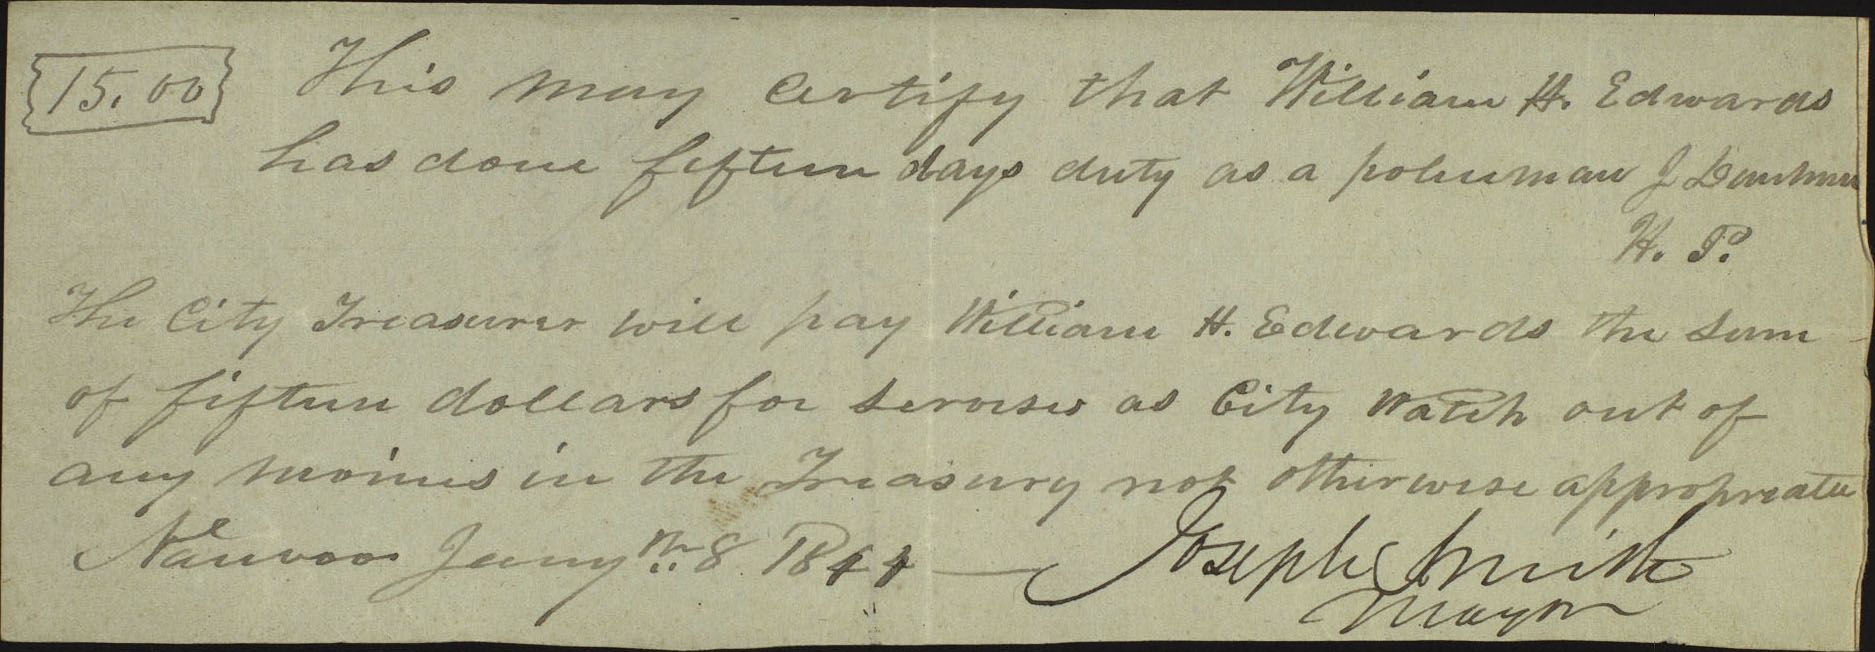 15.00 This may Certify that William H. Edwards
has done fifteen days duty as a policeman J Dunham
H. P.
The City Treasurer will pay William H. Edwards the sum
of fifteen dollars for servises as City Watch out of
any monies in the Treasury not otherwise appropriated
Nauvoo Jany th 8 1844
Joseph Smith
Mayor